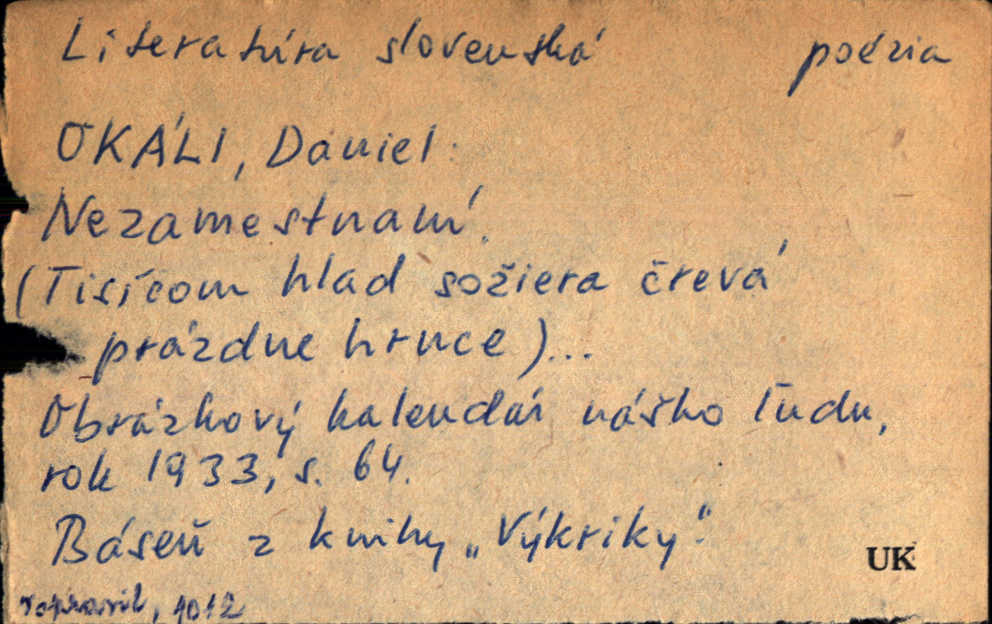 Literatúra slovenská poézia
OKÁLI, Daniel:
Nezamestnaní.
(Tisícom hlad sožiera črevá
prázdne hrnce)...
Obrázkový kalendár nášho ľudu,
rok 1933, s. 64.
Báseň z knihy „Výkriky".
UK